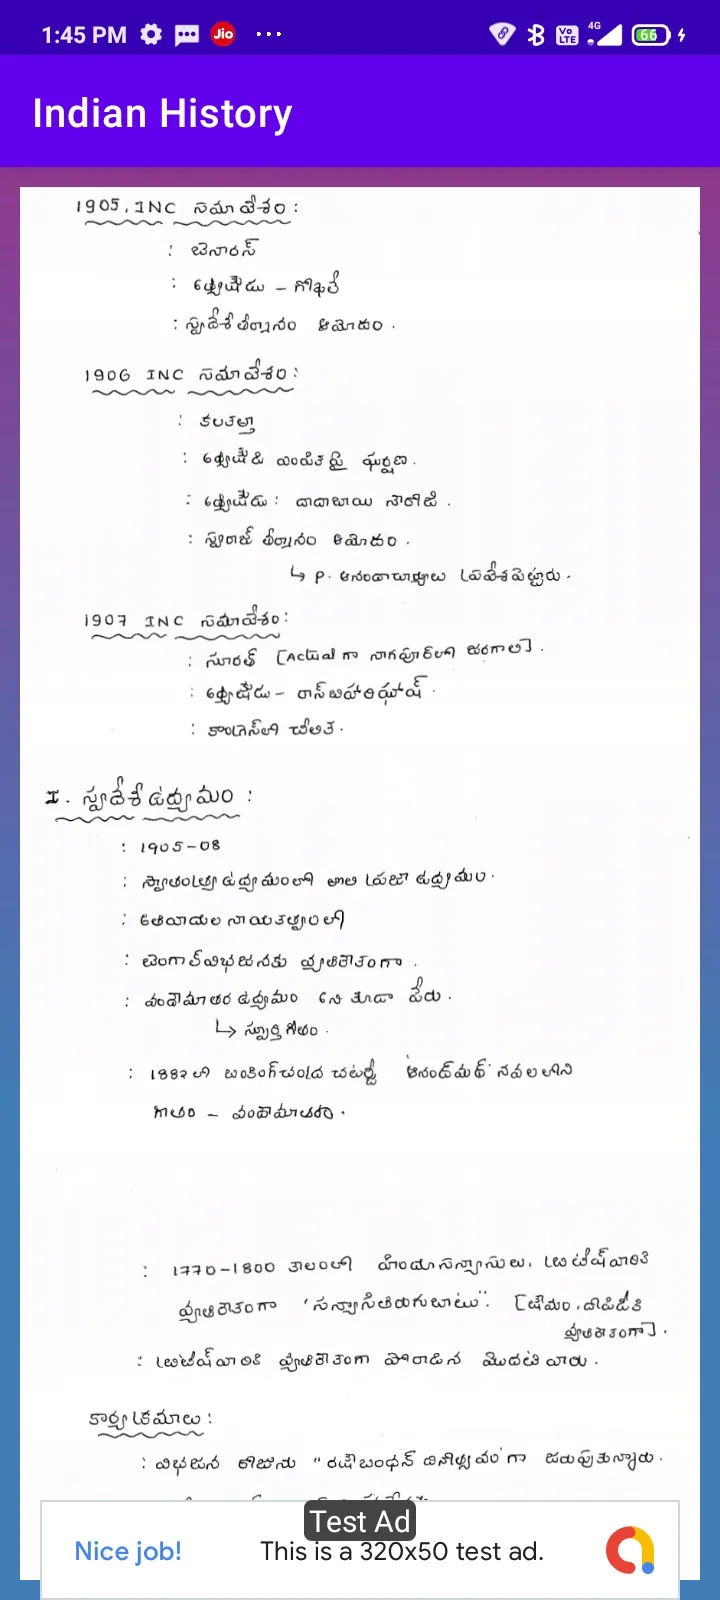 1:45 PM Jio ... Vo LTE 4G 66
Indian History
1905, INC సమావేశం :
: బెనారస్
: అధ్యక్షుడు – గోఖలే
: స్వదేశీ తీర్మానం ఆమోదం .
1906 INC సమావేశం :
: కలకత్తా
: అధ్యక్షుడి ఎంపికపై ఘర్షణ .
: అధ్యక్షుడు : దాదాబాయి నౌరోజి .
: స్వరాజ్ తీర్మానం ఆమోదం .
↳ P. ఆనందాచార్యులు ప్రవేశపెట్టారు .
1907 INC సమావేశం :
: సూరత్ [Actual గా నాగపూర్‌లో జరగాలి] .
: అధ్యక్షుడు – రాస్‌బిహారిఘోష్ .
: కాంగ్రెస్‌లో చీలిక .
I . స్వదేశీ ఉద్యమం :
: 1905-08
: స్వాతంత్ర్య ఉద్యమంలో తొలి ప్రజా ఉద్యమం .
: అతివాదుల నాయకత్వంలో
: బెంగాల్ విభజనకు వ్యతిరేకంగా .
: వందేమాతర ఉద్యమం అని కూడా పేరు .
↳ స్ఫూర్తి గీతం .
: 1882 లో బంకించంద్ర చటర్జీ 'ఆనంద్‌మఠ్' నవలలోని
గీతం – వందేమాతరం .
: 1770-1800 కాలంలో హిందూ సన్యాసులు, బ్రిటీష్‌వారికి
వ్యతిరేకంగా 'సన్యాసి తిరుగుబాటు". [క్షామం, దోపిడీకి
వ్యతిరేకంగా] .
: బ్రిటీష్‌వారికి వ్యతిరేకంగా పోరాడిన మొదటి వారు .
కార్యక్రమాలు :
: విభజన రోజును "రక్షాబంధన్ దినోత్సవం"గా జరుపుకున్నారు .
Test Ad
Nice job! This is a 320x50 test ad.